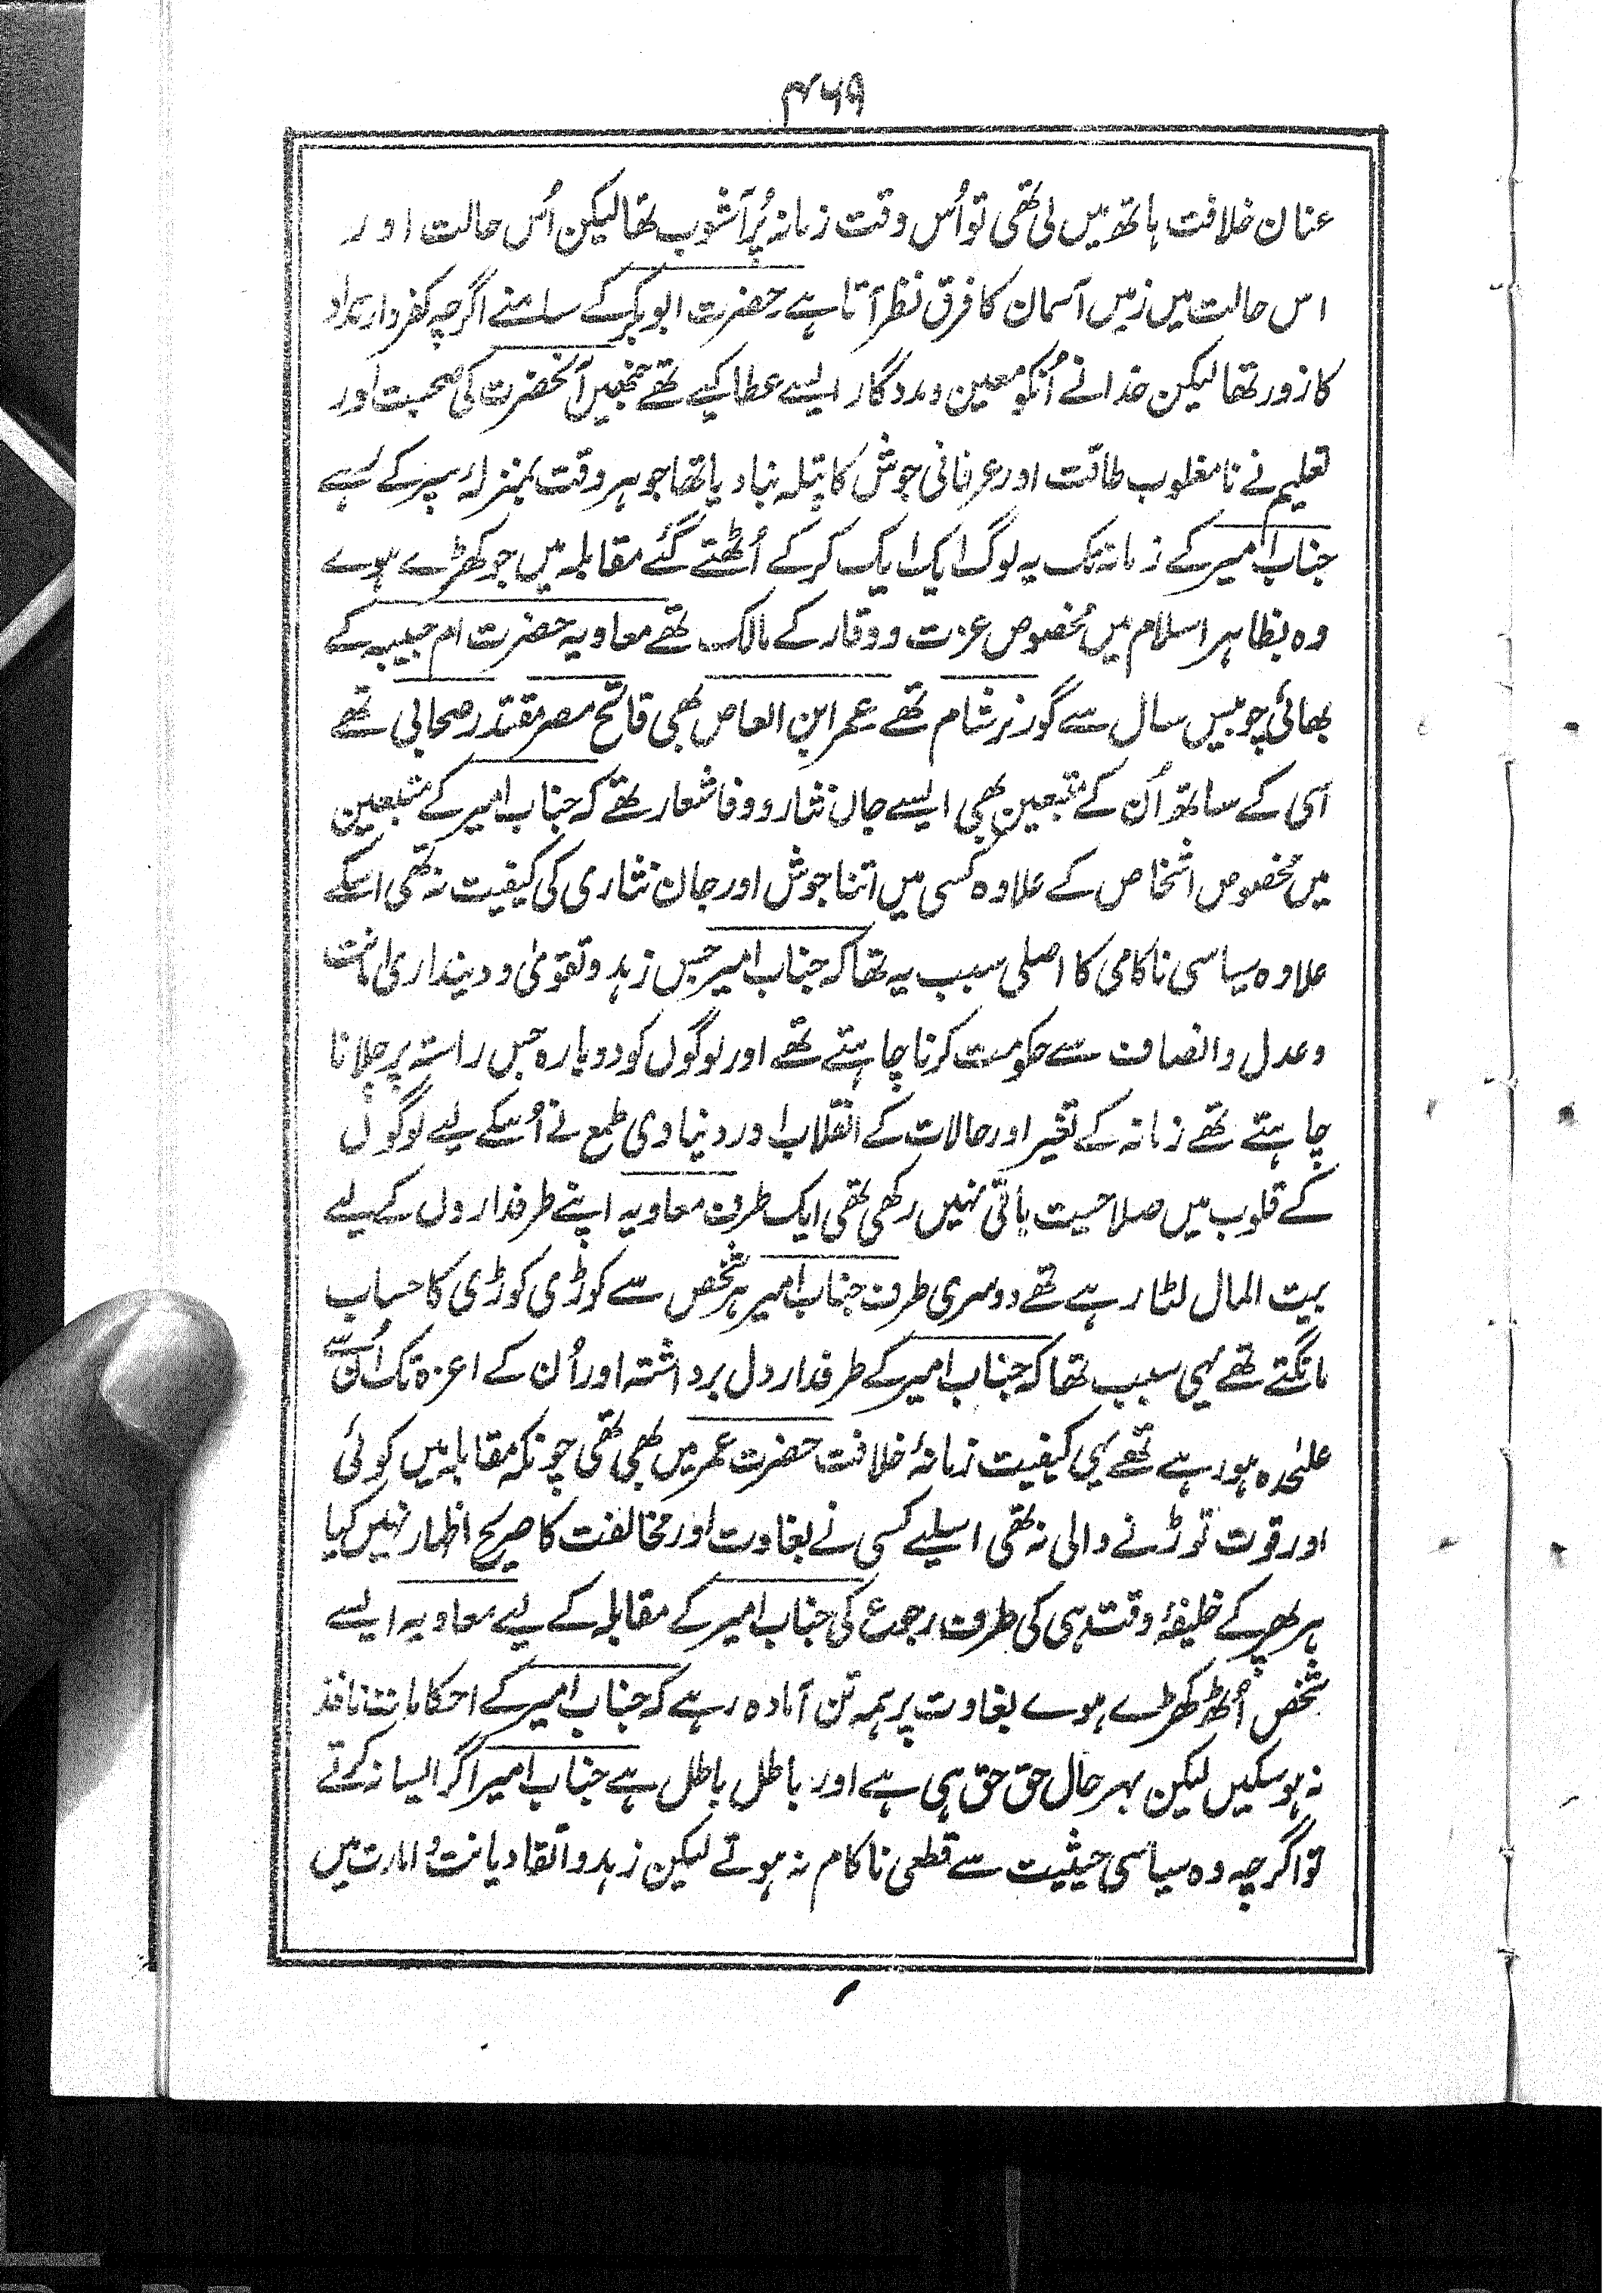 ۴۶۹
عنان خلافت ہاتھ میں لی تھی تو اُس وقت زمانہ پُر آشوب تھا لیکن اُس حالت اور
اس حالت میں زمین آسمان کا فرق نظر آتا ہے حضرت ابوبکر کے سامنے اگرچہ کفر وارتداد
کا زور تھا لیکن خدا نے اُنکو معین و مددگار ایسے عطا کیے تھے جنھیں آنحضرت کی صحبت اور
تعلیم نے نا مغلوب طاقت اور عرفانی جوش کا پتلہ بنا دیا تھا جو ہر وقت بمنزلہ سپر کے رہے
جناب امیر کے زمانہ تک یہ لوگ ایک ایک کر کے اُٹھتے گئے مقابلہ میں جو کھڑے ہوے
وہ بظاہر اسلام میں مخصوص عزت و وقار کے مالک تھے معاویہ حضرت ام حبیبہ کے
بھائی چوبیس سال سے گورنر شام تھے عمر ابن العاص بھی فاتح مصر مقتدر صحابی تھے
اسی کے ساتھ اُن کے متبعین بھی ایسے جان نثار و وفا شعار تھے کہ جناب امیر کے متبعین
میں مخصوص اشخاص کے علاوہ کسی میں اتنا جوش اور جان نثاری کی کیفیت نہ تھی اسکے
علاوہ سیاسی ناکامی کا اصلی سبب یہ تھا کہ جناب امیر جس زہد و تقویٰ و دینداری امانت
و عدل و انصاف سے حکومت کرنا چاہتے تھے اور لوگوں کو دوبارہ جس راستہ پر چلانا
چاہتے تھے زمانہ کے تغیر اور حالات کے انقلاب اور دنیاوی طمع نے اُسکے لیے لوگوں
کے قلوب میں صلاحیت باقی نہیں رکھی تھی ایک طرف معاویہ اپنے طرفداروں کے لیے
بیت المال لٹا رہے تھے دوسری طرف جناب امیر ہر شخص سے کوڑی کوڑی کا حساب
مانگتے تھے یہی سبب تھا کہ جناب امیر کے طرفدار دل برداشتہ اور اُن کے اعزہ تک اُن سے
علیحدہ ہو رہے تھے یہی کیفیت زمانۂ خلافت حضرت عمر میں بھی تھی چونکہ مقابلہ میں کوئی
اور قوت توڑنے والی نہ تھی اسلیے کسی نے بغاوت اور مخالفت کا صریح اظہار نہیں کیا
ہر پھر کے خلیفۂ وقت ہی کی طرف رجوع کی جناب امیر کے مقابلہ کے لیے معاویہ ایسے
شخص اُٹھ کھڑے ہوے بغاوت پر ہمہ تن آمادہ رہے کہ جناب امیر کے احکامات نافذ
نہ ہو سکیں لیکن بہر حال حق حق ہی ہے اور باطل باطل ہے جناب امیر اگر ایسا نہ کرتے
تو اگرچہ وہ سیاسی حیثیت سے قطعی ناکام نہ ہوتے لیکن زہد و اتقا دیانت و امارت میں